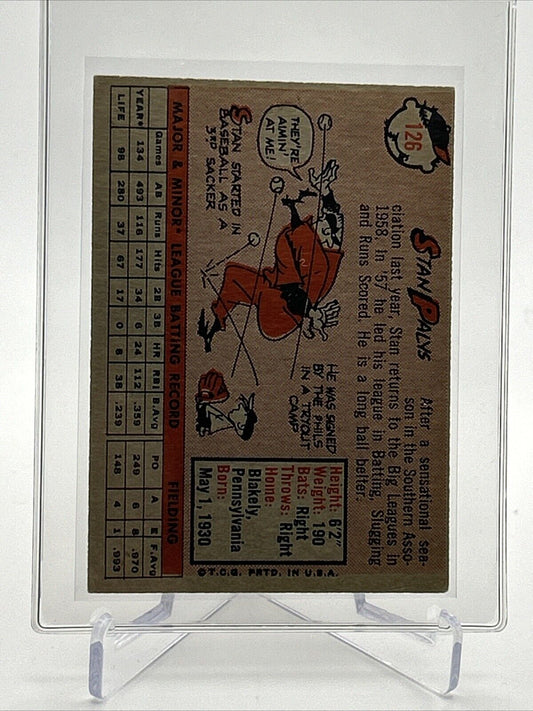 126
STAN PALYS
After a sensational sea-
son in the Southern Asso-
ciation last year, Stan returns to the Big Leagues in
1958 in '57 he led his league in Batting, Slugging
and Runs Scored. He is a long ball belter.
THEY'RE
AIMIN'
AT ME!
STAN STARTED IN
BASEBALL AS A
3RD SACKER
HE WAS SIGNED
BY THE PHILS
IN A TRYOUT
CAMP
Height: 6'2"
Weight: 190
Bats: Right
Throws: Right
Home:
Blakely,
Pennsylvania
Born:
May 1, 1930
MAJOR & MINOR* LEAGUE BATTING RECORD FIELDING
Games AB Runs Hits 2B 3B HR RBI B.Avg PO A E F.Avg
YEAR* 134 493 116 177 34 6 24 112 .359 249 6 8 .970
LIFE 98 280 37 67 17 0 6 38 .239 148 4 1 .993
©T.C.G. PRTD. IN U.S.A.